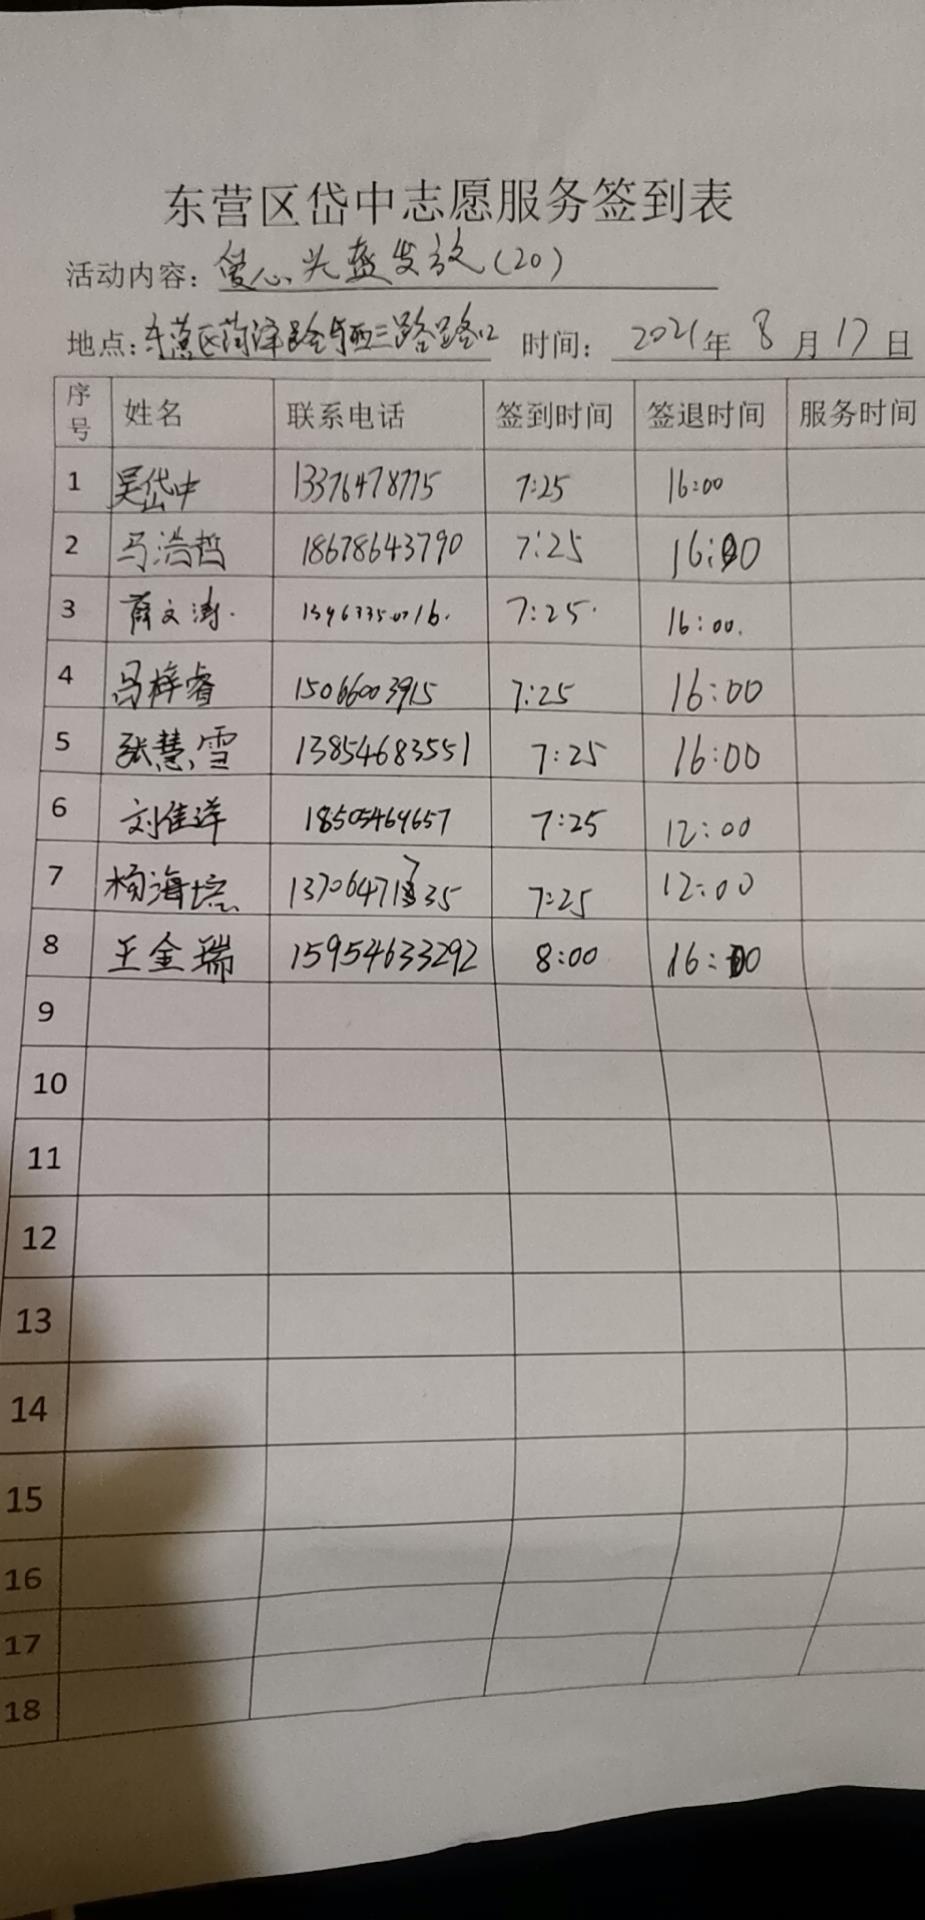 东营区岱中志愿服务签到表
活动内容：爱心头盔发放(20)
地点：东营区菏泽路与西三路路口 时间：2021年8月17日
序号 姓名 联系电话 签到时间 签退时间 服务时间
1 吴岱中 13376478775 7:25 16:00
2 马浩哲 18678643790 7:25 16:00
3 薛文涛. 7:25. 16:00.
4 马梓睿 15066003915 7:25 16:00
5 张慧雪 13854683551 7:25 16:00
6 刘佳洋 18505469657 7:25 12:00
7 杨海 7:25 12:00
8 王金瑞 15954633292 8:00 16:00
9
10
11
12
13
14
15
16
17
18